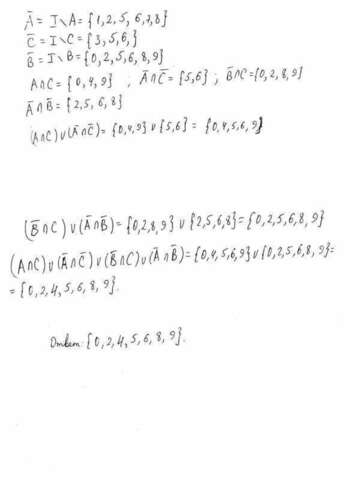 Ā = I\A = {1, 2, 5, 6, 7, 8}
C̄ = I\C = {3, 5, 6,}
B̄ = I\B = {0, 2, 5, 6, 8, 9}
A∩C = {0, 4, 9} ; Ā∩C̄ = {5, 6} ; B̄∩C = {0, 2, 8, 9}
Ā∩B̄ = {2, 5, 6, 8}
(A∩C)∪(Ā∩C̄) = {0, 4, 9} ∪ {5, 6} = {0, 4, 5, 6, 9}
(B̄∩C)∪(Ā∩B̄) = {0, 2, 8, 9} ∪ {2, 5, 6, 8} = {0, 2, 5, 6, 8, 9}
(A∩C)∪(Ā∩C̄)∪(B̄∩C)∪(Ā∩B̄) = {0, 4, 5, 6, 9}∪{0, 2, 5, 6, 8, 9} =
= {0, 2, 4, 5, 6, 8, 9}.
Ответ: {0, 2, 4, 5, 6, 8, 9}.